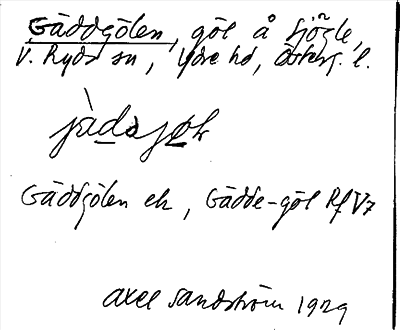 Gäddgölen, göl å Sjögle,
V. Ryds sn, Ydre hd, Österg. l.
jàdajøḷn
Gäddgölen ek, Gädde-göl Rf V7
Axel Sandström 1929